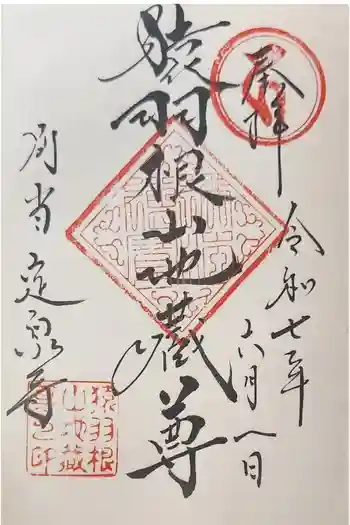 奉拝
令和七年
六月八日
猿羽根山地蔵尊
別当 定泉寺
猿羽根
山地蔵
尊之印